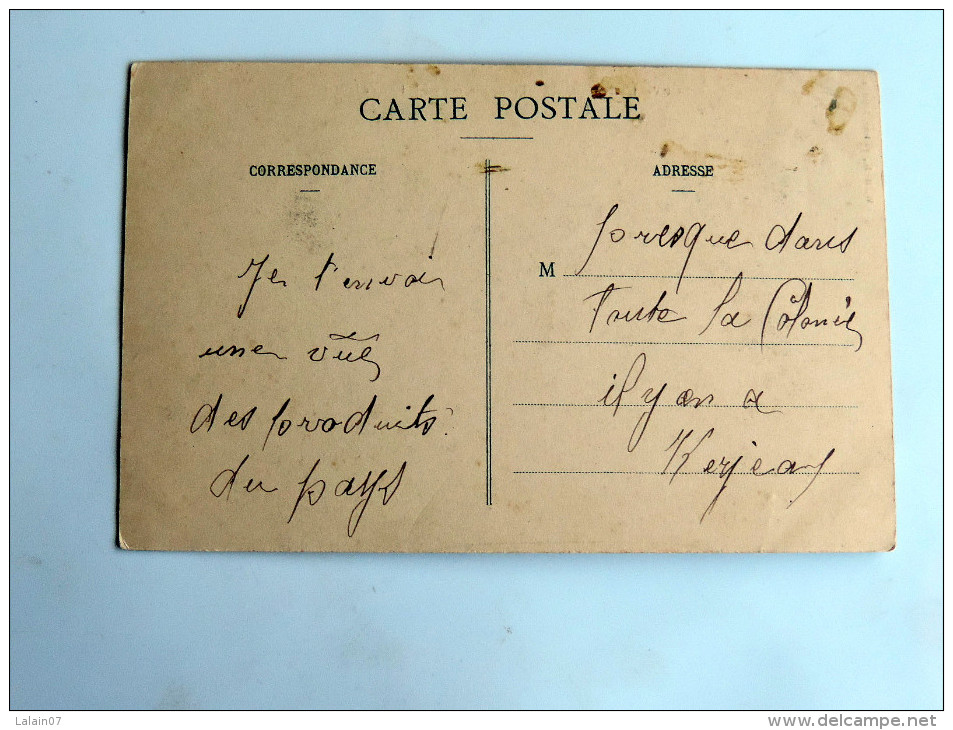 CARTE POSTALE
CORRESPONDANCE
Je t'envoie
une vue
des produits
du pays
ADRESSE
presque dans
M
toute la Colonie
il y en a
Kerjean
Lalain07
www.delcampe.net